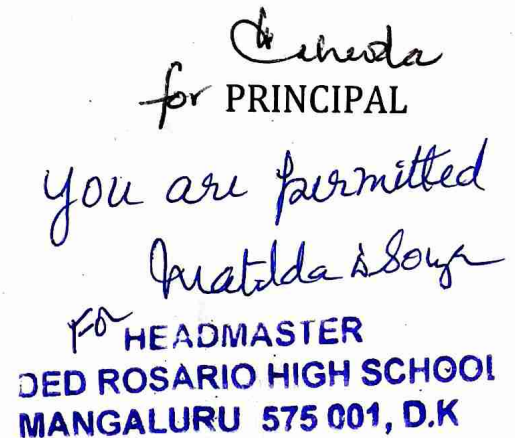 for PRINCIPAL
you are permitted
Matilda D'Souza
For HEADMASTER
DED ROSARIO HIGH SCHOOL
MANGALURU 575 001, D.K